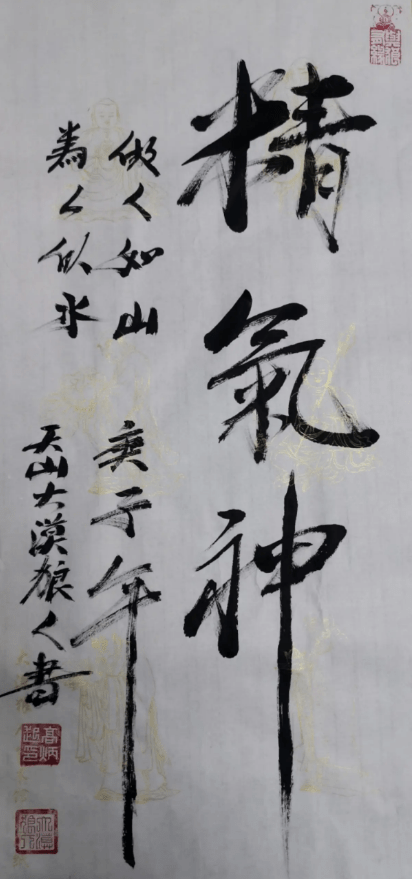 精氣神
做人如山
為人似水
庚子年
天山大漠狼人書